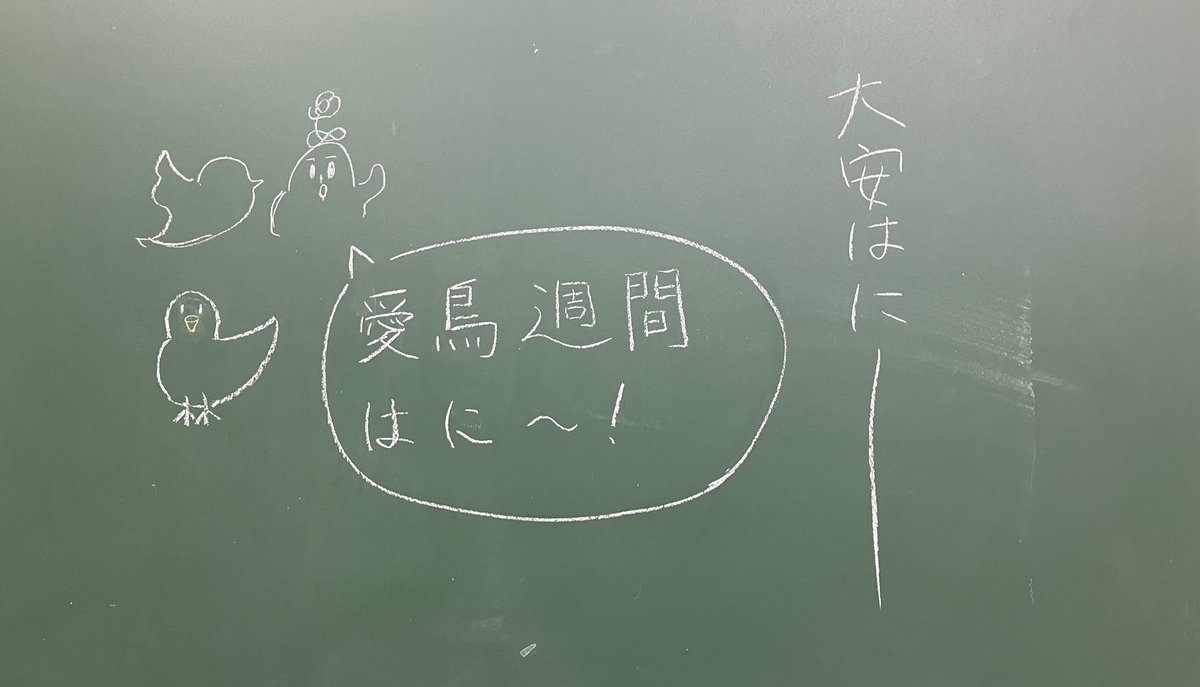 大安はにー
愛鳥週間
はに〜!